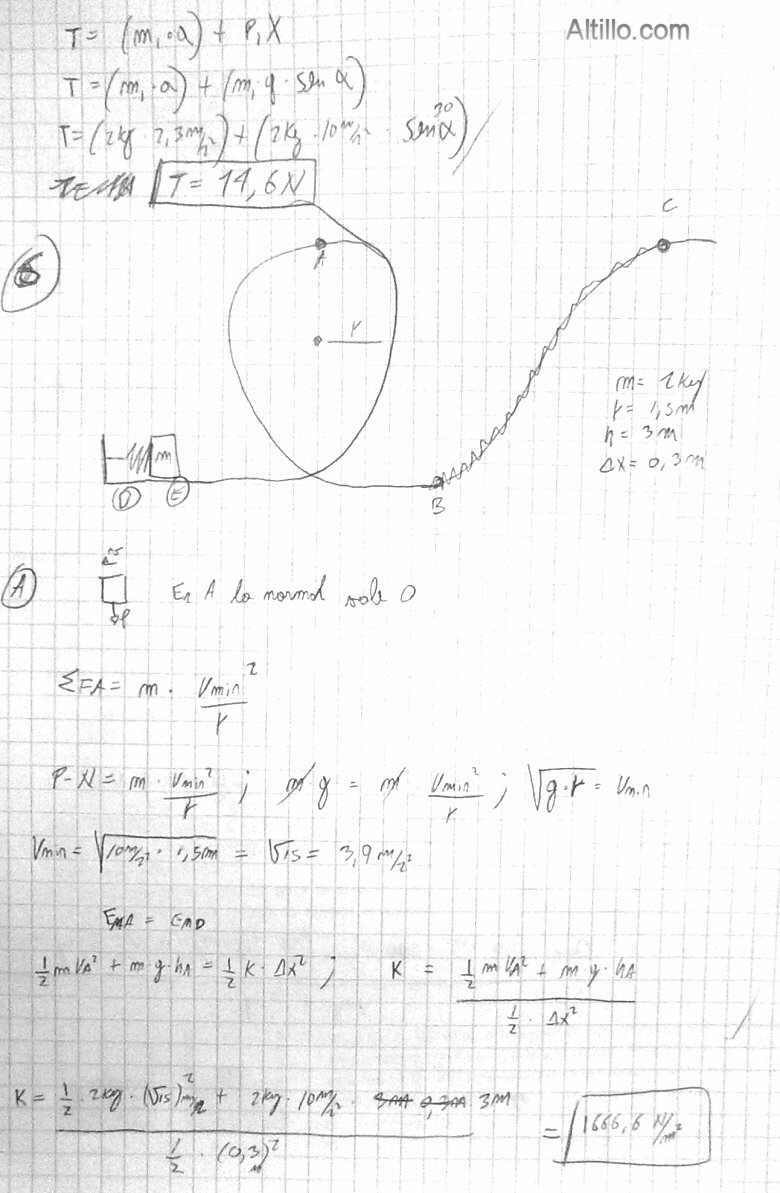 Altillo.com
T = (m₁·a) + P₁X
T = (m₁·a) + (m₁ g · sen α)
T = (2kg · 2,3m/s²) + (2kg · 10m/s² · sen α) 30
T = 14,6N
6
A
r
C
m = 2kg
r = 1,5m
h = 3m
Δx = 0,3m
m
D E
B
A
En A la normal vale 0
ΣFA = m · Vmin²/r
P-N = m · Vmin²/r ; m g = m Vmin²/r ; √g·r = Vmin
Vmin = √10m/s² · 1,5m = √15 = 3,9 m/s²
EMA = EMD
1/2 m VA² + m g · hA = 1/2 K · Δx² ; K = (1/2 m VA² + m g · hA) / (1/2 · Δx²)
K = (1/2 · 2kg · (√15)² m/s + 2kg · 10m/s² · 3m) / (1/2 · (0,3)² m) = 1666,6 N/m²